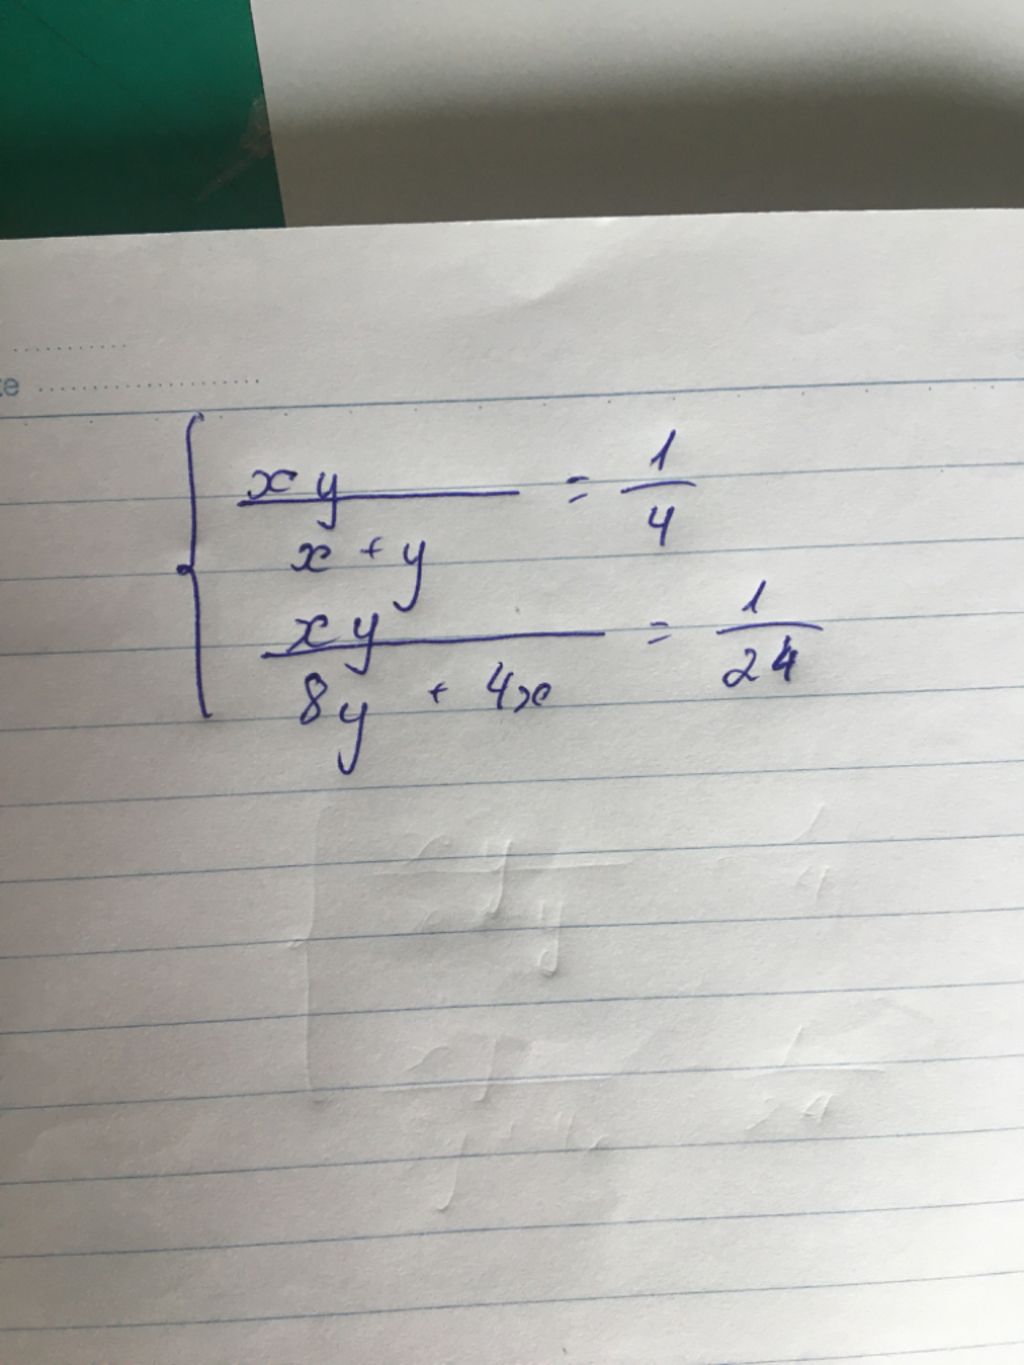 te ........................
xy / x + y = 1/4
xy / 8y + 4x = 1/24